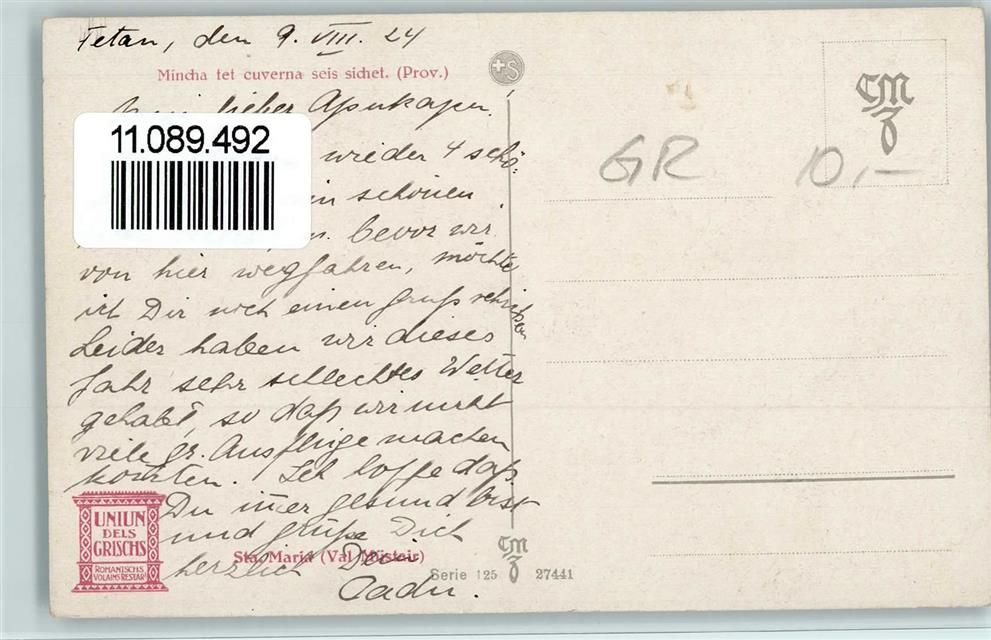 Fetan, den 9. VIII. 24
Mincha tet cuverna seis sichet. (Prov.)
+S
lieber
11.089.492
wieder 4 schö-
schönen
bevor wir
von hier wegfahren, möchte
ich Dir noch einen Gruß schreiben
Leider haben wir dieses
Jahr sehr schlechtes Wetter
gehabt, so daß wir nicht
viele gr. Ausflüge machen
konnten. Ich hoffe daß
Du imer gesund bist
und grüße Dich
herzlich Dein
UNIUN
DELS
GRISCHS
ROMANTSCHS
VOLAINS RESTAR
Sta. Maria (Val Müstair)
Serie 125 CMZ 27441
CMZ
GR 10,-